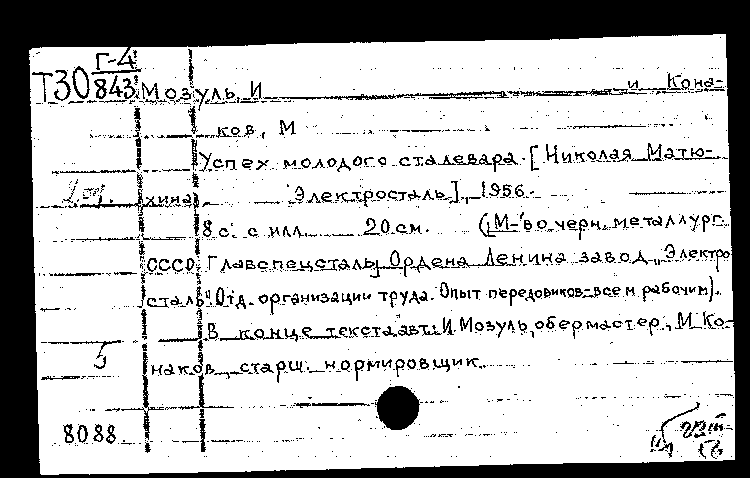 Г-4
Т30 843 Мозуль, И и Кона-
ков, М
Успех молодого сталевара. [Николая Матю-
2 эк. хина. Электросталь], 1956.
8 с. с илл. 20 см. (М-во черн. металлург.
СССР. Главспецсталь. Ордена Ленина завод "Электро
сталь". Отд. организации труда. Опыт передовиков-всем рабочим).
В конце текста авт.: И Мозуль, обермастер, М Ко-
5 наков, старш. нормировщик.
8088